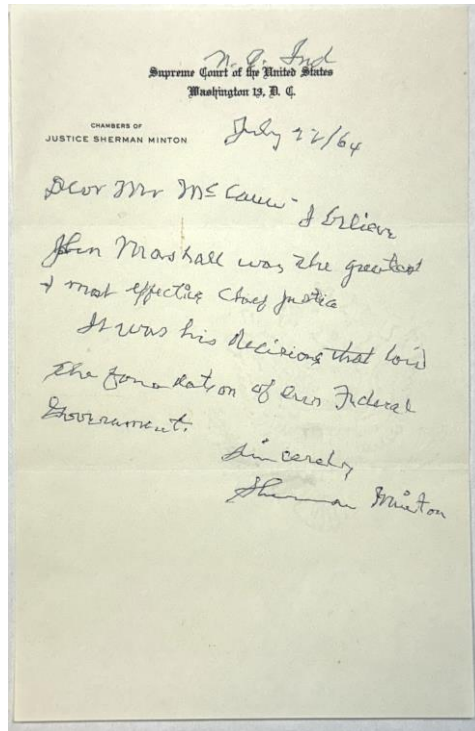 N. A. Ind
Supreme Court of the United States
Washington 13, D. C.
CHAMBERS OF
JUSTICE SHERMAN MINTON
July 22/64
Dear Mr
I believe
John Marshall was the greatest
& most effective Chief Justice
It was his decisions that laid
the foundation of our Federal
Government.
Sincerely
Sherman Minton